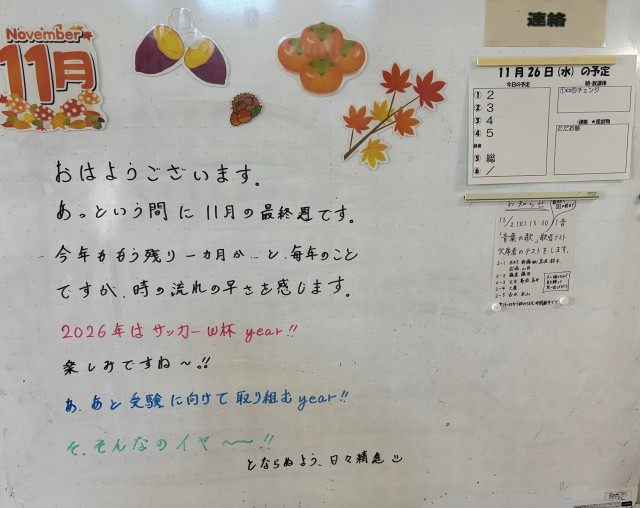 November
11月
おはようございます。
あっという間に11月の最終週です。
今年ももう残り一カ月か…と、毎年のこと
ですが、時の流れの早さを感じます。
2026年はサッカーW杯 year!!
楽しみですね〜!!
あ、あと受験に向けて取り組むyear!!
そ、そんなのイヤ〜〜!!
とならぬよう、日々精進
連絡
11月26日(水)の予定
今日の予定
① 2
② 3
③ 4
④ 5
⑤ 総
⑥ /
①⇔⑤チェンジ
ただお塾
お知らせ
「青葉の歌」歌唱テスト
欠席者のテストをします。